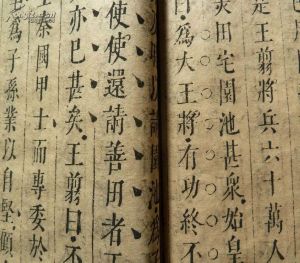 是王翦將兵六十萬人
美田宅園池甚衆始皇
曰爲大王將有功終不
時以請園池爲
使使還請善田者五
亦已甚矣王翦曰不
秦國甲士而專委於
爲子孫業以自堅顧